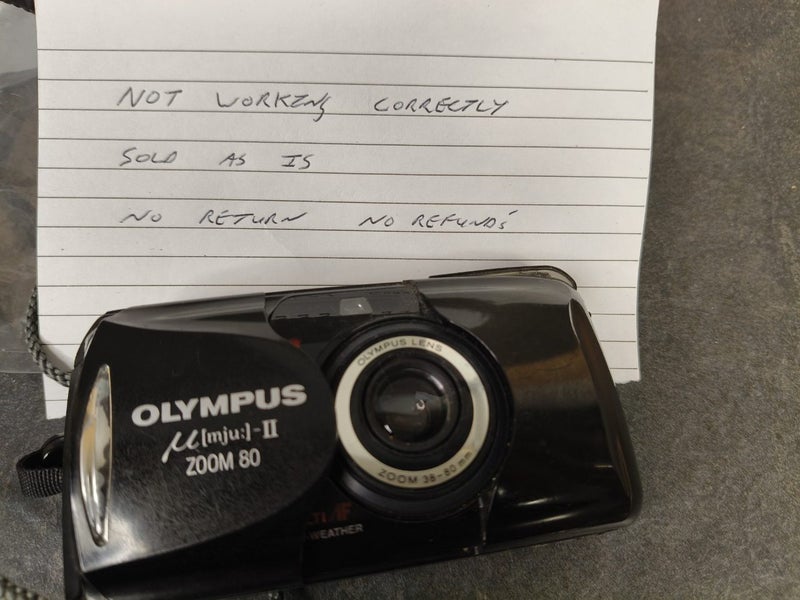 NOT WORKING CORRECTLY
SOLD AS IS
NO RETURN NO REFUNDS
OLYMPUS LENS
OLYMPUS
μ[mju:]-II
ZOOM 80
ZOOM 38-80 mm
AF
WEATHER